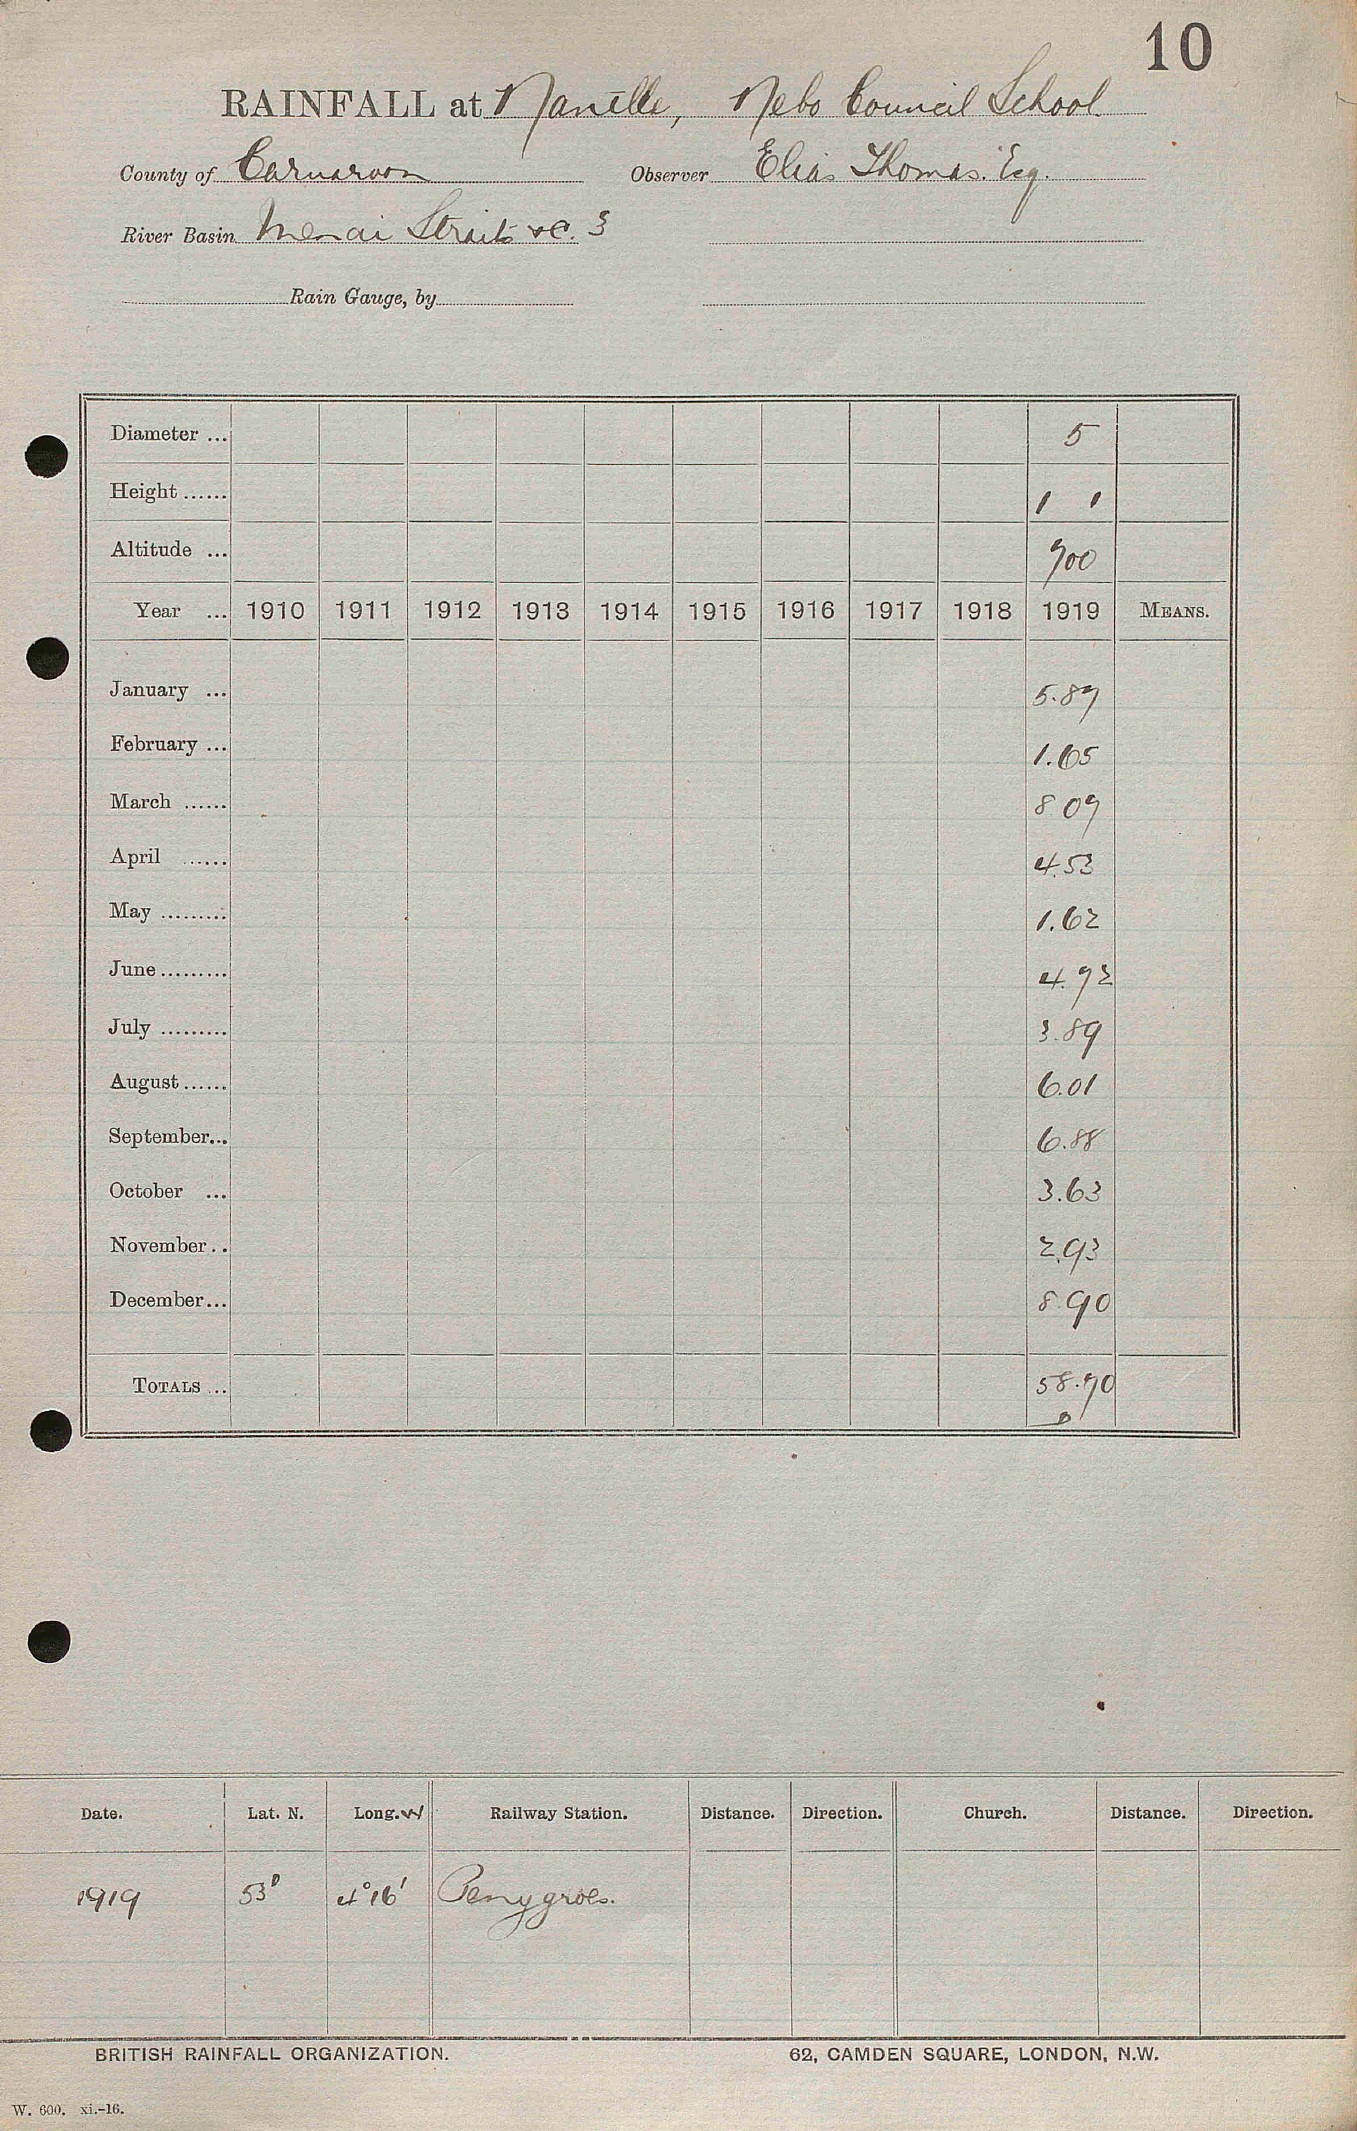 10
RAINFALL at Nantlle, Nebo Council School
County of Carnarvon Observer Elias Thomas. Esq.
River Basin Menai Straits &c. 3
Rain Gauge, by
Diameter ... 5
Height ...... 1 1
Altitude ... 700
Year ... 1910 1911 1912 1913 1914 1915 1916 1917 1918 1919 MEANS.
January ... 5.87
February ... 1.65
March ...... 8.07
April ...... 4.53
May ......... 1.62
June ......... 4.72
July ......... 3.89
August ...... 6.01
September ... 6.88
October ... 3.63
November .. 2.93
December ... 8.90
TOTALS ... 58.70
Date. Lat. N. Long. W Railway Station. Distance. Direction. Church. Distance. Direction.
1919 53° 4°16' Penygroes.
BRITISH RAINFALL ORGANIZATION. 62, CAMDEN SQUARE, LONDON, N.W.
W. 600. xi.-16.